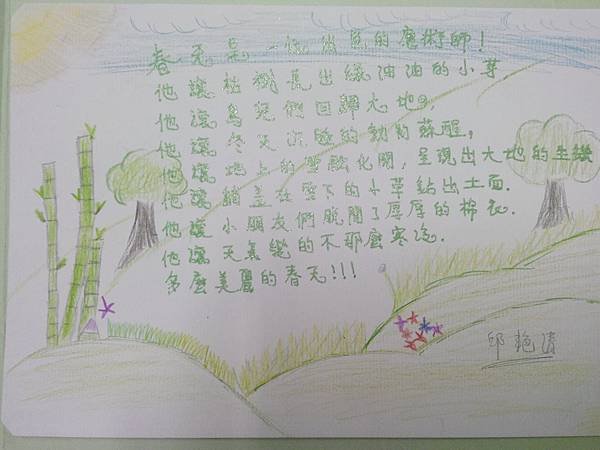 春天是一位出色的魔術師!
他讓枯樹長出綠油油的小芽
他讓鳥兒們回歸大地,
他讓冬天沉睡的動物蘇醒,
他讓地上的雪融化開,呈現出大地的生機
他讓鋪蓋在雪下的小草鉆出土面.
他讓小朋友們脫開了厚厚的棉衣.
他讓天氣變的不那麼寒冷.
多麼美麗的春天!!!
邱艷清